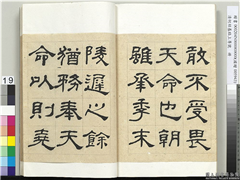 敢不受畏
天命也朝
雖承季末
陵遲之餘
猶務奉天
命以則堯
19